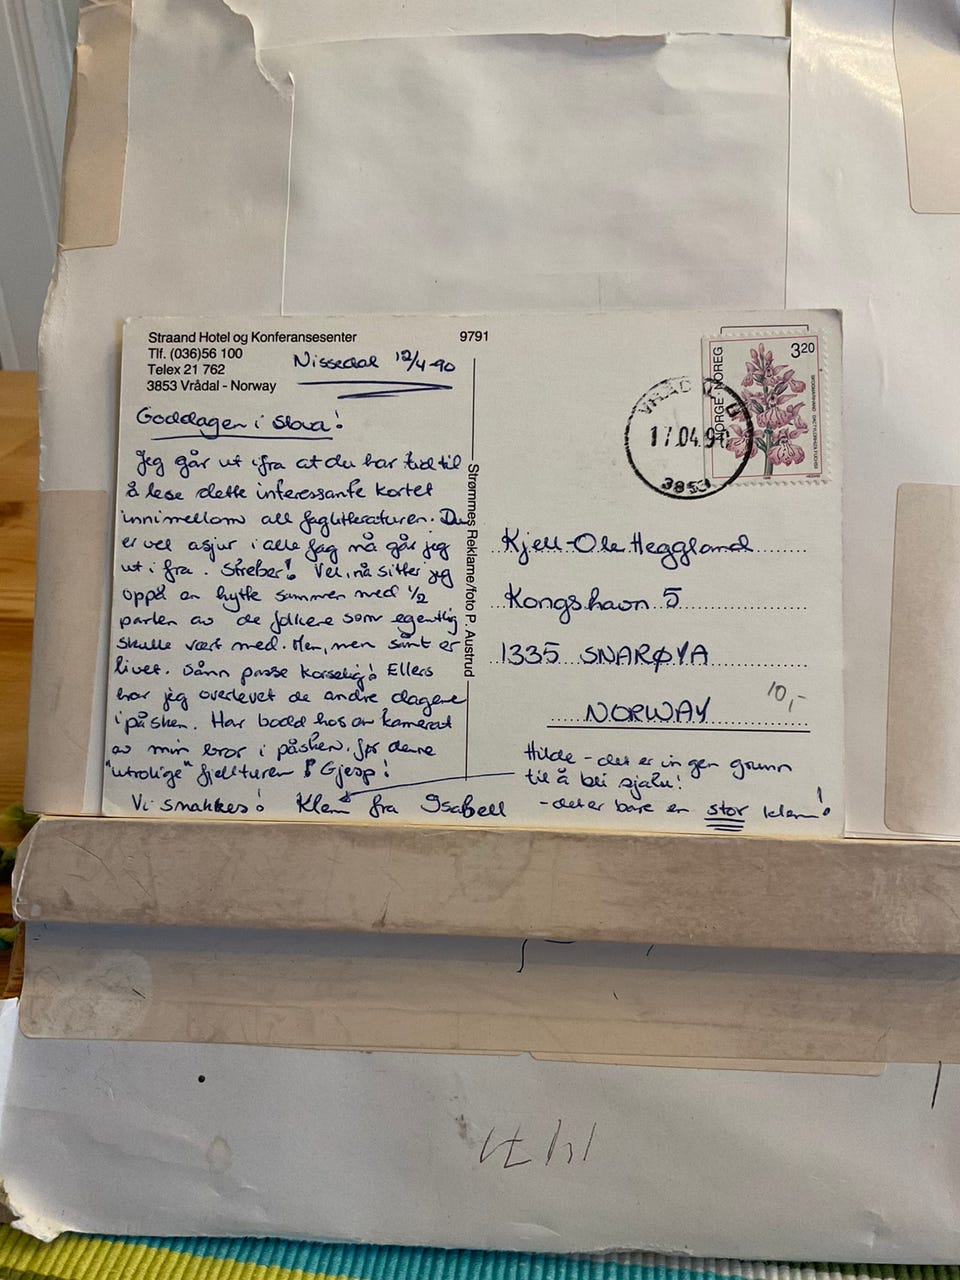 Straand Hotel og Konferansesenter
Tlf. (036)56 100
Telex 21 762
3853 Vrådal - Norway
9791
Nissedal 12/4-90
Goddagen i stova!
Jeg går ut ifra at du har tid til
å lese dette interessante kortet
innimellom all faglitteraturen. Du
er vel asjur i alle fag nå går jeg
ut i fra. Streber! Vel, nå sitter jeg
oppå en hytte sammen med 1/2
parten av de folkene som egentlig
skulle vært med. Men, men sånt er
livet. Sånn passe koselig! Ellers
har jeg overlevet de andre dagene
i påsken. Har bodd hos en kamerat
av min bror i påsken, før denne
"utrolige" fjellturen! Gjesp!
Vi snakkes! Klem fra Isabell
Strømmes Reklame/foto P. Austrud
NORGE NOREG
320
VRÅDAL
17.04.90
3853
Kjell-Ole Heggland
Kongshavn 5
1335 SNARØYA
NORWAY
10,-
Hilde - det er ingen grunn
til å bli sjalu!
- det er bare en stor klem!